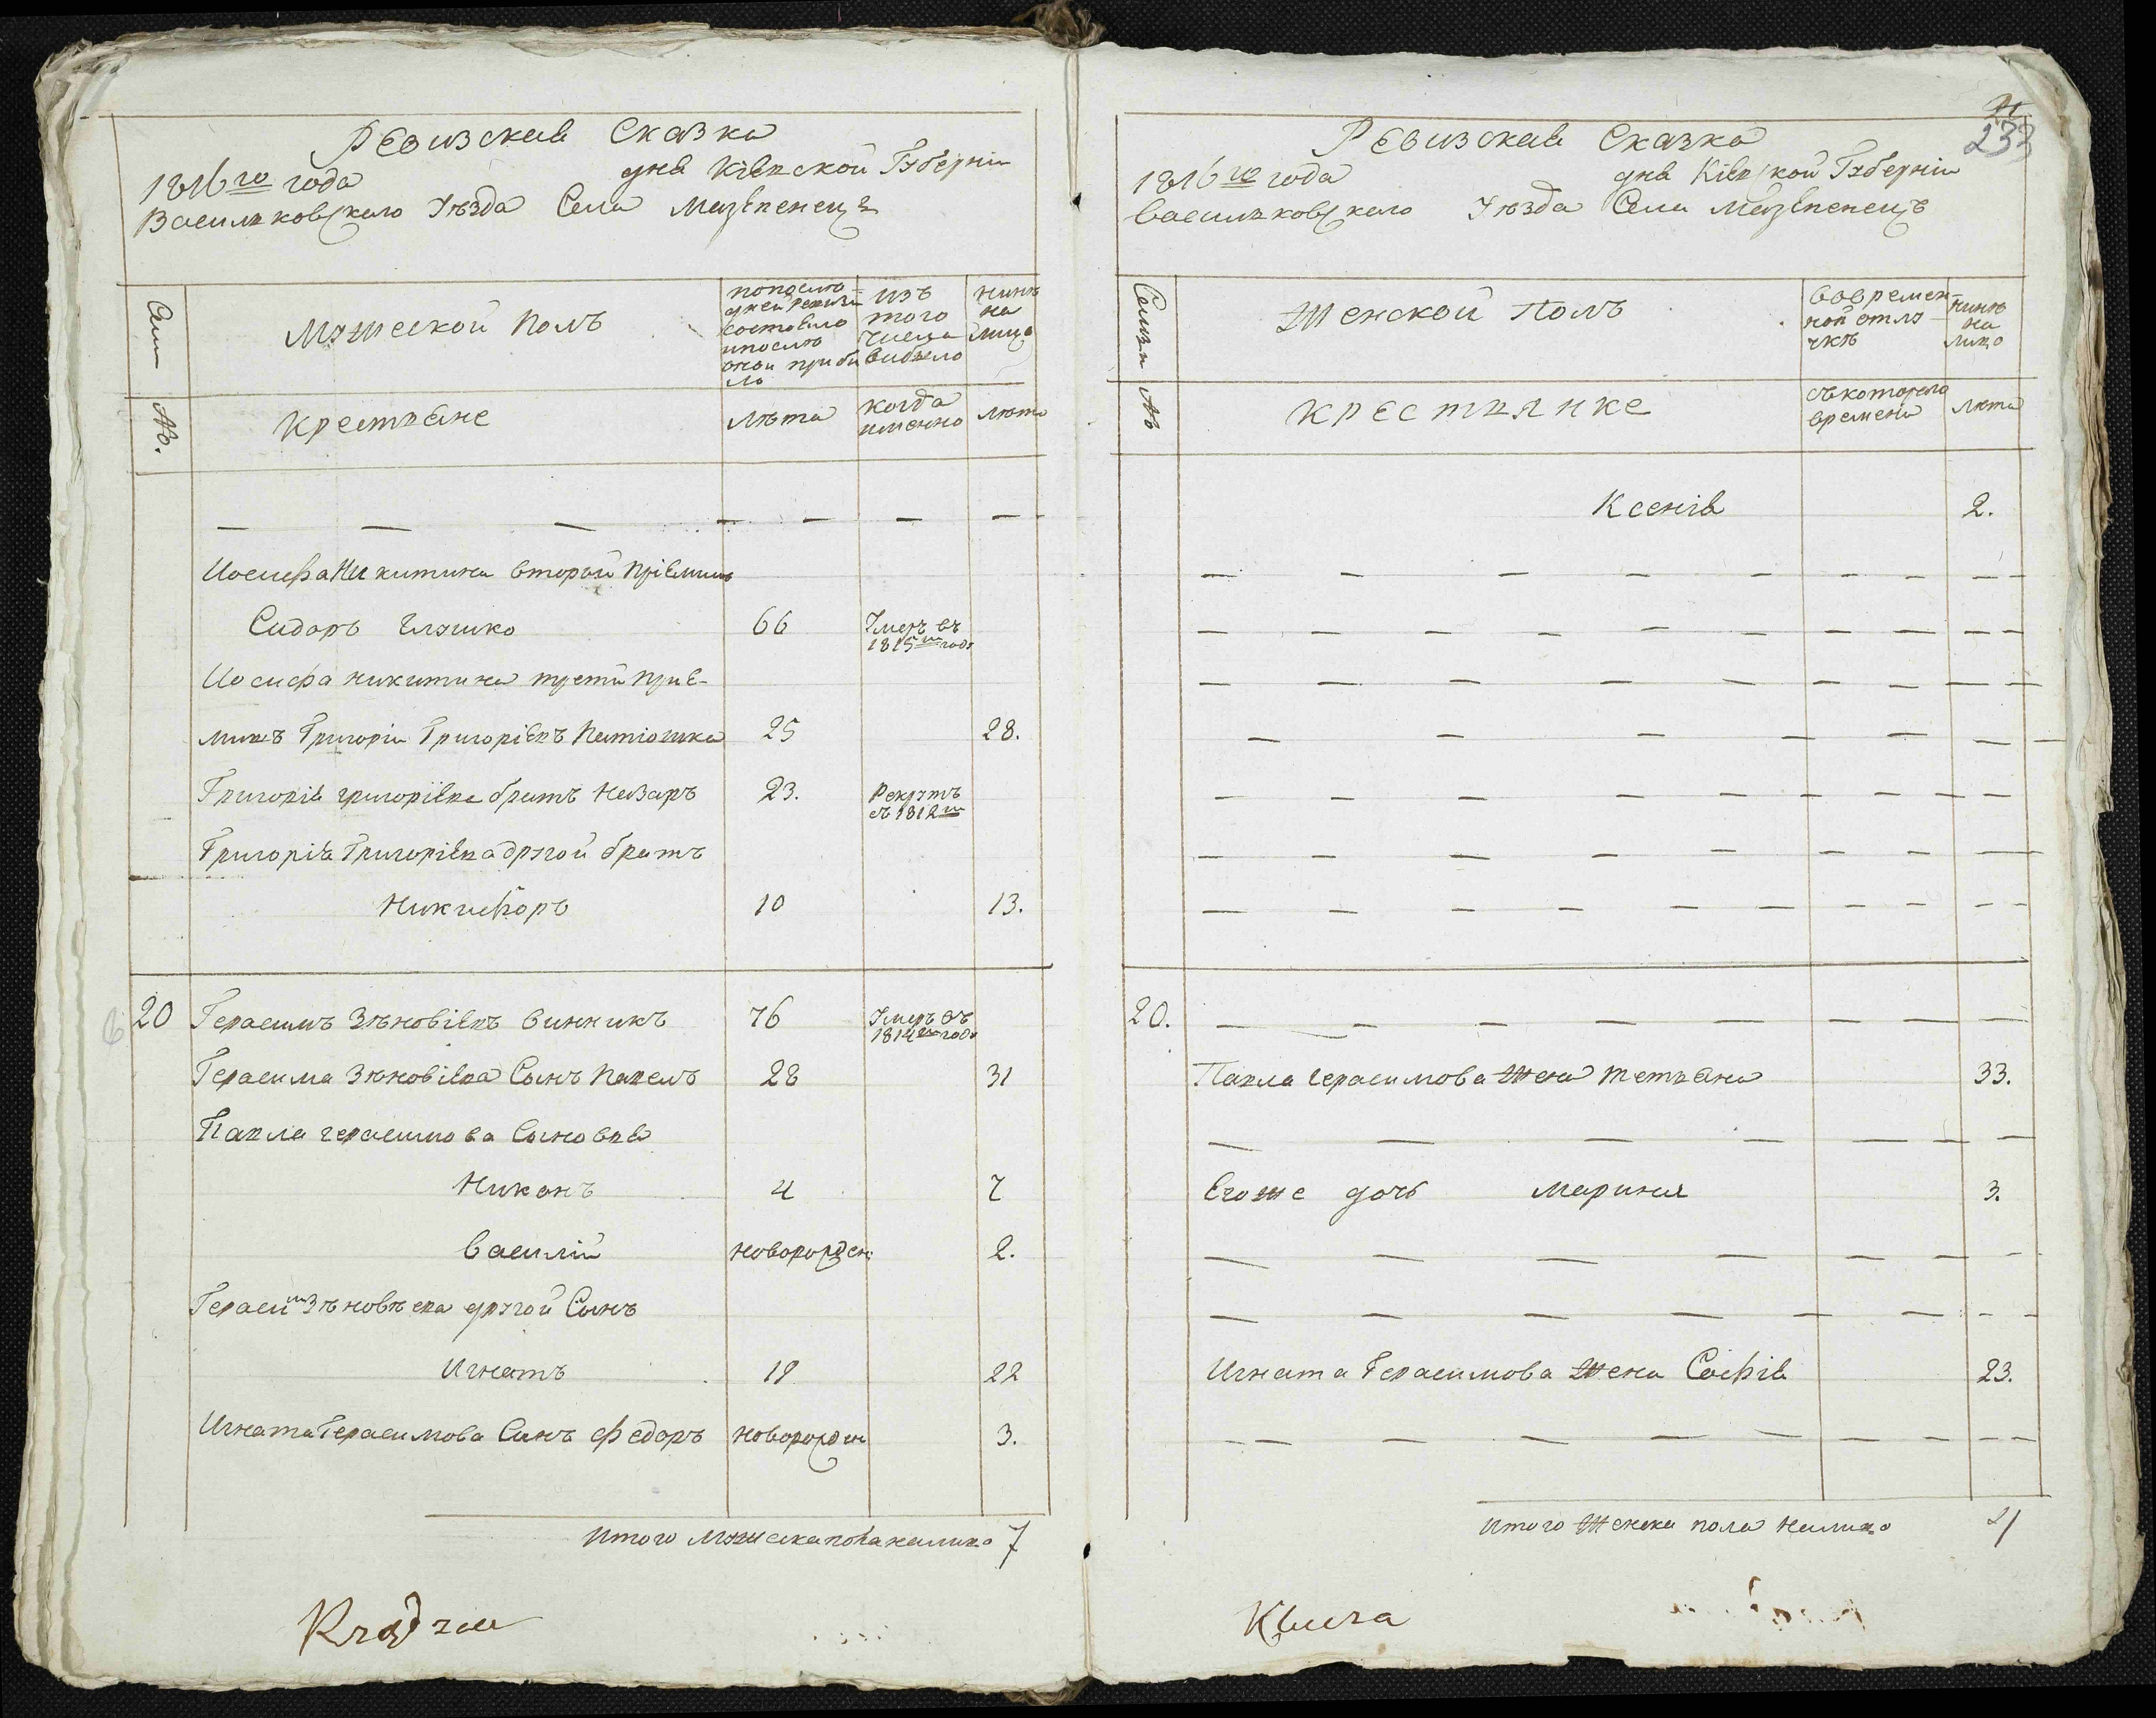 Ревизская Сказка
1816го года дня Кіевской Губерніи
Васильковского Уезда Села Мазепенецъ
Мужеской полъ
по последней ревизіи состояло и после оной прибило
изъ того числа выбыло
нинѣ на лицо
№.
Крестьяне
лѣта
когда именно
лѣта
— — — — — — —
Иосифа Никитина второй пріемишъ
Сидоръ Глушко 66 Умеръ въ 1815м году
Иосифа Никитина трети пріе-
мишъ Григоріи Григоріевъ Патюшка 25 28.
Григорія григоріева братъ Назаръ 23. Рекрутъ съ 1812го
Григорія Григоріева другой братъ
Никифоръ 10 13.
20 Герасимъ Зѣновіевъ винникъ 76 Умеръ въ 1814м году
Герасима Зѣновіева Сынъ Павелъ 28 31
Павла герасимова Сыновья
Никонъ 4 7
Василій новорожден: 2.
Герасима Зѣновѣева другой Сынъ
Игнатъ 19 22
Игната Герасимова Синъ Федоръ новорожден 3.
Итого мужеска пола налицо 7
233
Ревизская Сказка
1816го года дня Кіевской Губерніи
Васильковского Уезда Села Мазепенецъ
Семьи №
Женской Полъ
во времен-
ной отлу-
чкѣ
нинѣ
на
лицо
Крестьянке
съ которого
времени
лѣта
Ксенія 2.
20.
Павла Герасимова Жена Тетьяна 33.
Егоже дочь Марина 3.
Игната Герасимова Жена Софія 23.
Итого Женска пола налицо 4